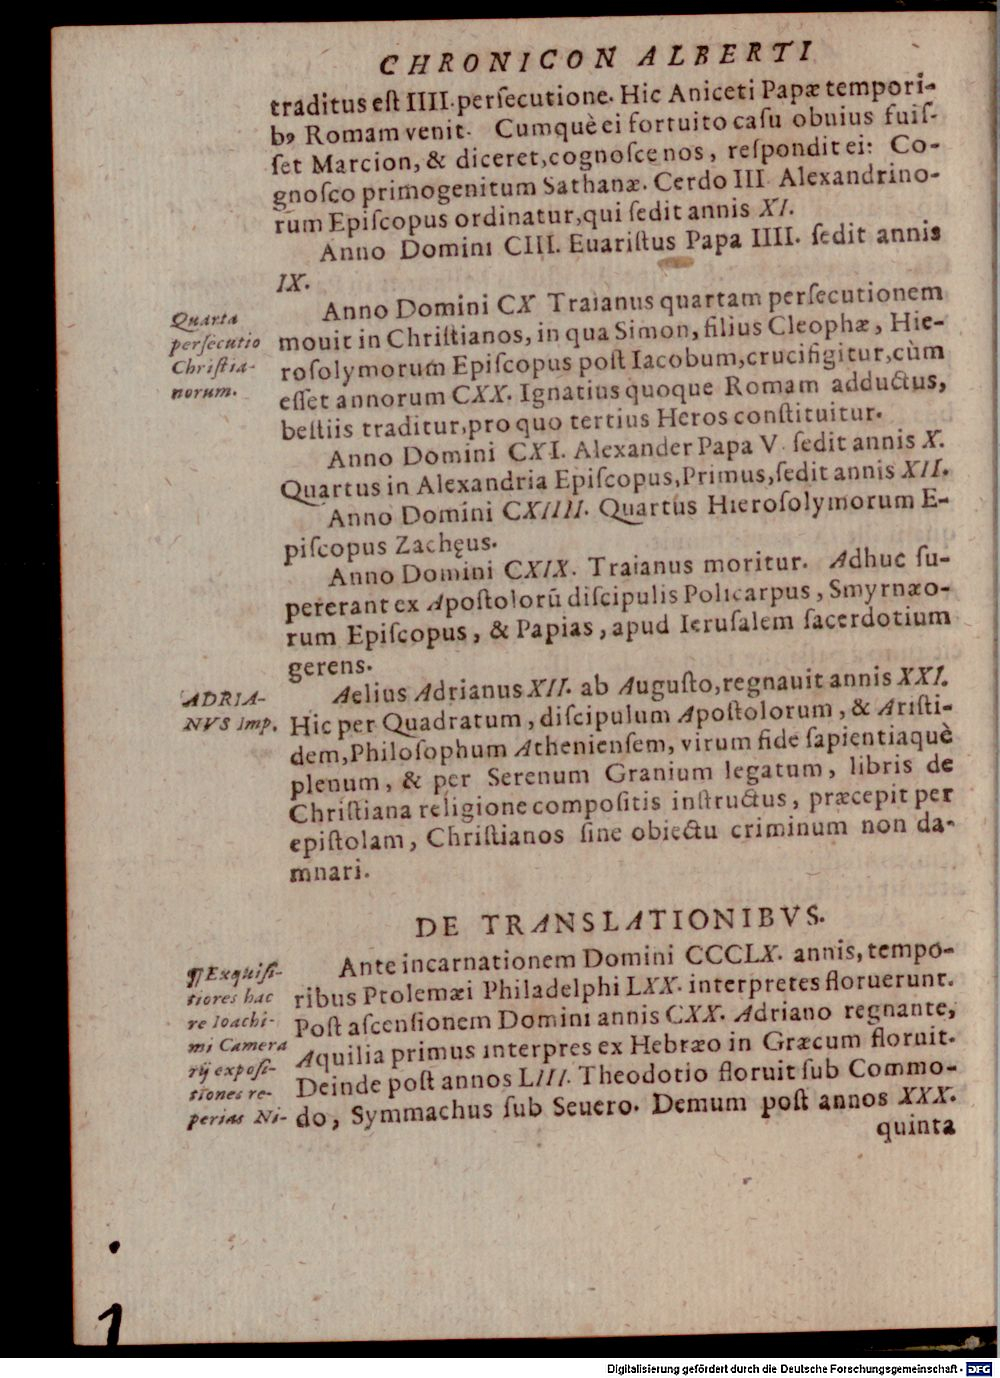 CHRONICON ALBERTI
traditus eſt IIII. perſecutione. Hic Aniceti Papæ tempori-
bꝰ Romam venit. Cumquè ei fortuito caſu obuius fuiſ-
ſet Marcion, & diceret, cognoſce nos, reſpondit ei: Co-
gnoſco primogenitum Sathanæ. Cerdo III Alexandrino-
rum Epiſcopus ordinatur, qui ſedit annis XI.
Anno Domini CIII. Euariſtus Papa IIII. ſedit annis
IX.
Quarta
perſecutio
Chriſtia-
norum.
Anno Domini CX Traianus quartam perſecutionem
mouit in Chriſtianos, in qua Simon, filius Cleophæ, Hie-
roſolymorum Epiſcopus poſt Iacobum, crucifigitur, cùm
eſſet annorum CXX. Ignatius quoque Romam adductus,
beſtiis traditur, pro quo tertius Heros conſtituitur.
Anno Domini CXI. Alexander Papa V. ſedit annis X.
Quartus in Alexandria Epiſcopus, Primus, ſedit annis XII.
Anno Domini CXIIII. Quartus Hieroſolymorum E-
piſcopus Zachęus.
Anno Domini CXIX. Traianus moritur. Adhuc ſu-
pererant ex Apoſtolorū diſcipulis Policarpus, Smyrnæo-
rum Epiſcopus, & Papias, apud Ieruſalem ſacerdotium
gerens.
ADRIA-
NVS Imp.
Aelius Adrianus XII. ab Auguſto, regnauit annis XXI.
Hic per Quadratum, diſcipulum Apoſtolorum, & Ariſti-
dem, Philoſophum Athenienſem, virum fide ſapientiaquè
plenum, & per Serenum Granium legatum, libris de
Chriſtiana religione compoſitis inſtructus, præcepit per
epiſtolam, Chriſtianos ſine obiectu criminum non da-
mnari.
DE TRANSLATIONIBVS.
¶ Exquiſi-
tiores hac
re Ioachi-
mi Camera
rij expoſi-
tiones re-
perias Ni-
Ante incarnationem Domini CCCLX. annis, tempo-
ribus Ptolemæi Philadelphi LXX. interpretes floruerunt.
Poſt aſcenſionem Domini annis CXX. Adriano regnante,
Aquilia primus interpres ex Hebræo in Græcum floruit.
Deinde poſt annos LIII. Theodotio floruit ſub Commo-
do, Symmachus ſub Seuero. Demum poſt annos XXX.
quinta
1
Digitalisierung gefördert durch die Deutsche Forschungsgemeinschaft - DFG